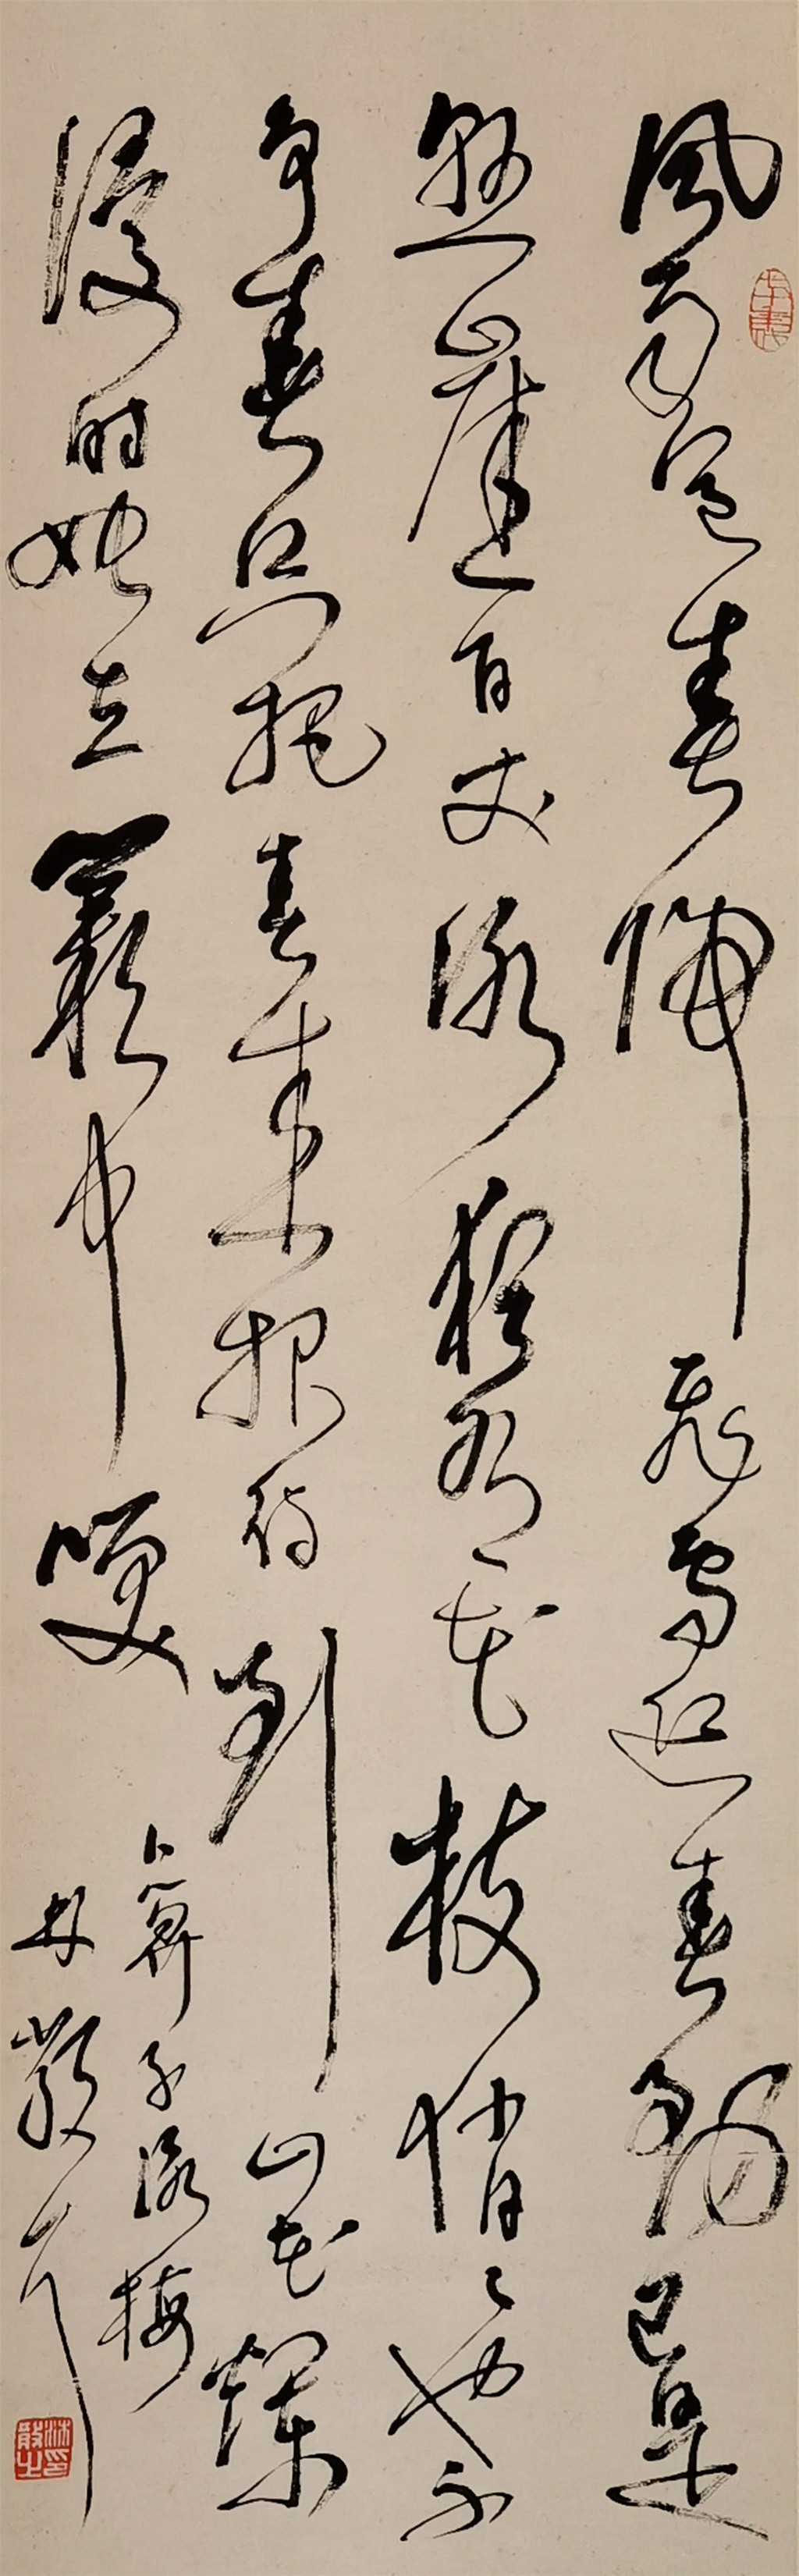 風雨送春歸飛雪迎春到已是
懸崖百丈冰猶有花枝俏〻也不
爭春只把春來報待到山花爛
漫时她在叢中笑
卜算子詠梅
林散之
林印散之